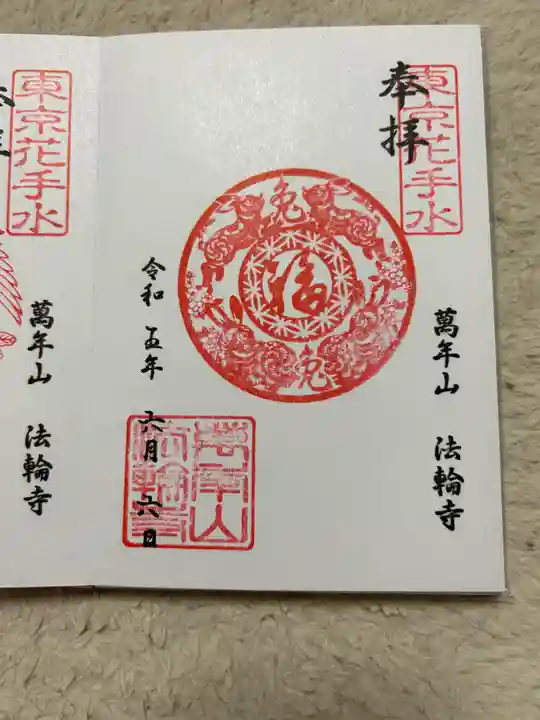 奉拝
東京花手水
萬年山 法輪寺
兔
福
兔
令和 五年 六月 六日
萬年山
法輪寺
東京花手水
萬年山 法輪寺